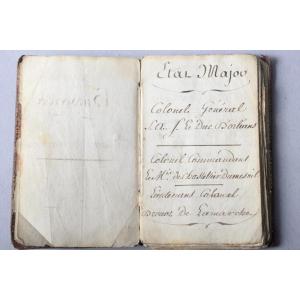 Etat Major,
Colonel Général
S. A. S. Le Duc Dorleans
Colonel Commandant
Le Mis. du Chastellier Dumesnil
Lieutenant Colonel
De Lamarche